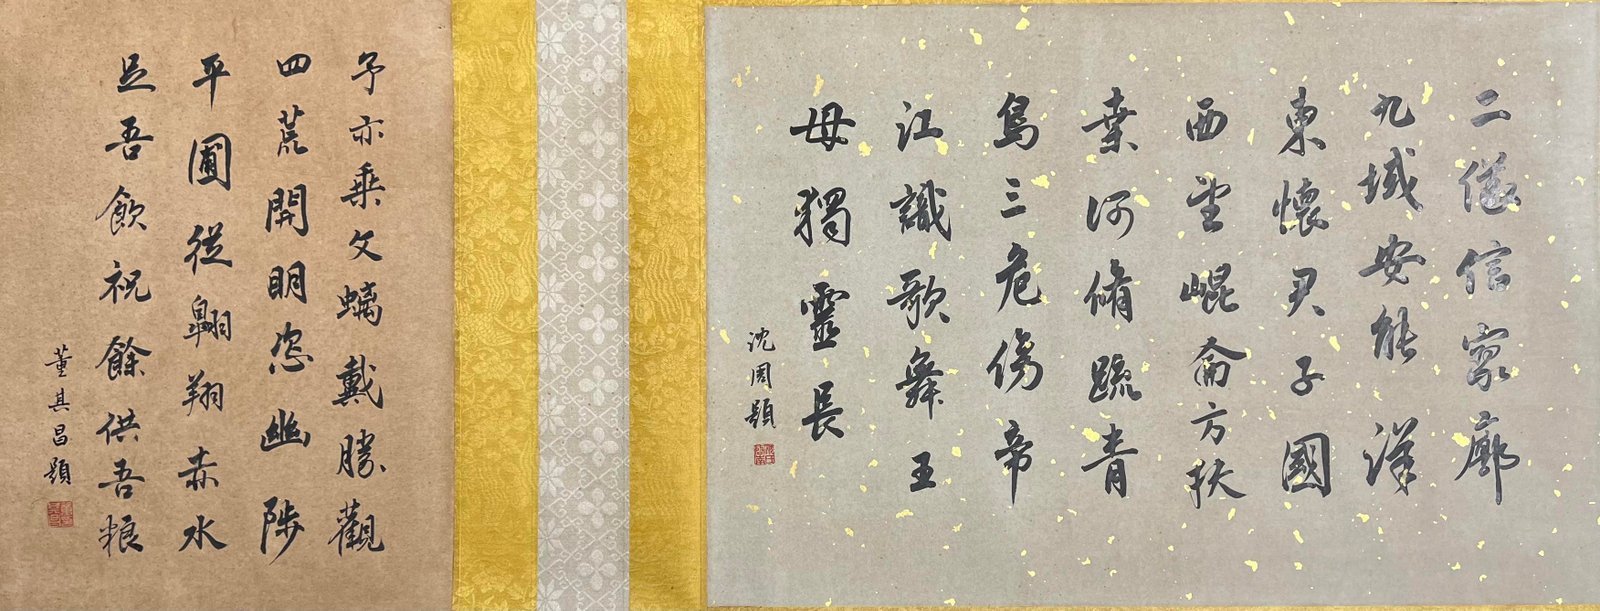 二儀信寥廓
九域安能詳
東懷君子國
西望崐崙方扶
桒何脩疏青
鳥三危傍帝
江識歌舞王
母獨靈長
沈周題
予亦乘文螭戴勝觀
四荒開明恣幽陟
平圃從翱翔赤水
足吾飲祝餘供吾粮
董其昌題